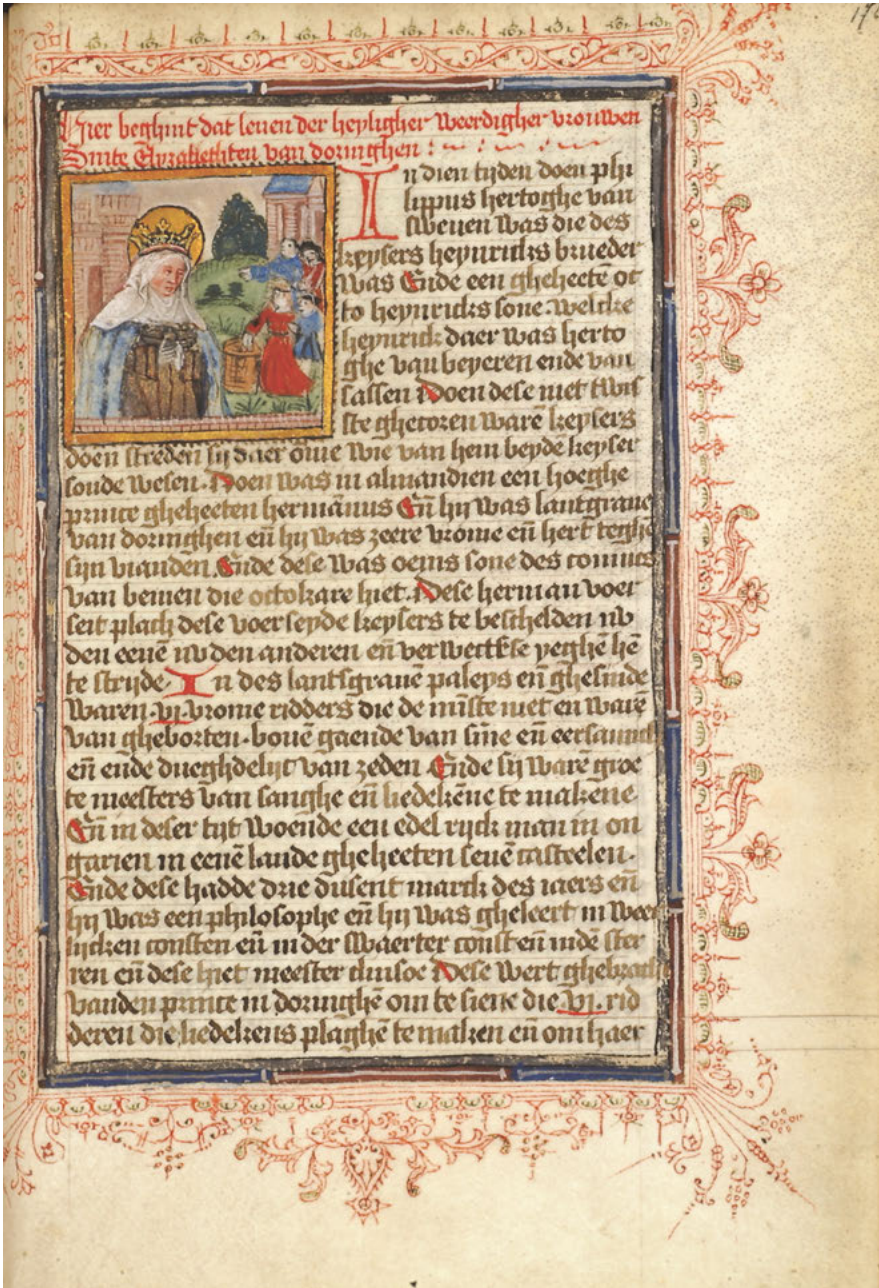 17
Hier beghint dat leuen der heyligher weerdigher vrouwen
Sinte Elyzabethten van doringhen :
In dien tyden doen phi
lippus hertoghe van
sweuen was die des
keysers heynricks brueder
was Ende een gheheetē ot
to heynricks sone. welcke
heynrick daer was herto
ghe van beyeren ende van
sassen Doen dese niet twis
ste ghecoren warē keysers
doen streden sij daer ōme wie van hem beyde keyser
soude wesen. Doen was in almandien een hoeghe
prince gheheeten hermānus Eñ hij was lantgraue
van doringhen eñ hij was zeere vrome eñ hert teghē
sijn vianden. Ende dese was oems sone des conincs
van bemen die octokare hiet. Dese herman voer
seit plach dese voer seyde keysers te beschelden nv
den eenē nv den anderen eñ verwecktse yeghē hē
te stryde. In des lantsgrauē paleys eñ ghesinde
waren .vi. vrome ridders die de mīste niet en warē
van gheborten. bouē gaende van sīne eñ eersaem
eñ ende dueghdelijc van zeden Ende sij warē groe
te meesters van sanghe eñ liedekēne te makene
Eñ in deser tijt woende een edel rijck man in on
garien in eenē lande gheheeten seuē casteelen.
Ende dese hadde drie dusent marck des iaers eñ
hij was een philosophe eñ hij was gheleert in weer
lijcken consten eñ in der swaerter const eñ indē ster
ren eñ dese hiet meester clinsoe Dese wert ghebracht
vanden prince in doringhē om te siene die .vi. rid
deren die liedekens plaghē te maken eñ om haer